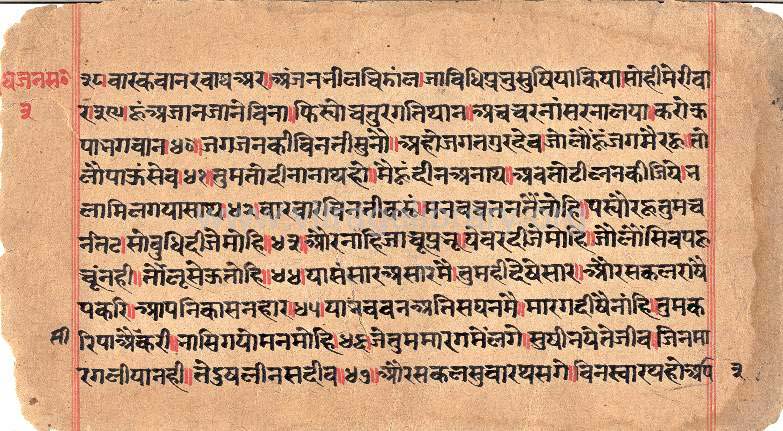 ३८ वास्कवानरवाघ अरु अंजन नील चिंडाल जा विधि प्रभु सुषिया किया सो ही मेरी वा
र ३९ हूं अजान जाने विना फिस्यो चतुरगति थान अब चरनां सरना लया करो क्र
पा भगवान ४० जगजन की विनती सुनौ अहो जगतगुरदेव जो लौ हूं जग मै रहूं तो
लौ पाऊं सेव ४१ तुम तो दीनानाथ हो मै हूं दीन अनाथ अब तो ढील न कीजिये भ
ला मिल गया साथ ४२ बार बार विनती करूं मन वच तन तैं तोहि पस्यौ रहूं तुम च
र्न तट सो बुधि दीजै मोहि ४३ और नाहि जाचू प्रभू ये वर दीजे मोहि जौ लौं सिव पहू
चू नही तौ लू सेऊ तोहि ४४ या संसार असार मै तुम ही देषे सार और सकल राषै
पकरि आप निकासनहार ४५ या भववन अति सघन मै मारग दीषै नांहि तुम क
रिपा औकरी भासि गयो मन मांहि ४६ जे तुम मारग मे लगे सुषी भये ते जीव जिन मा
रग लीया नही ते दुष लीन सदीव ४७ और सकल सुवारथ सगे विन स्वारथ हो अपि
३
सी
३